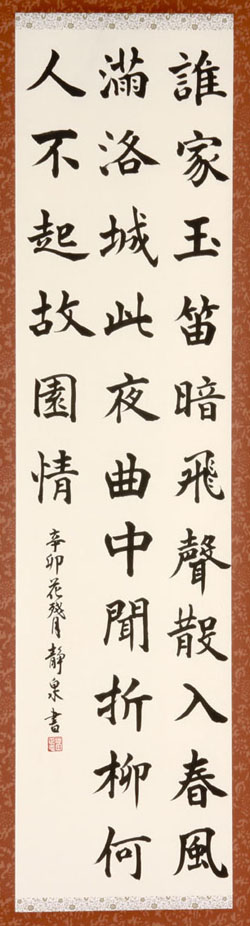 誰家玉笛暗飛聲散入春風
滿洛城此夜曲中聞折柳何
人不起故園情
辛卯花残月靜泉書